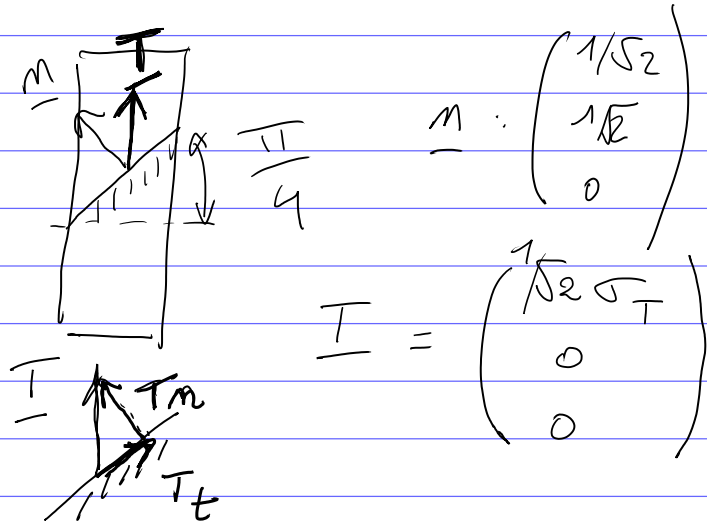 T
n
α
π/4
n : (1/√2
1/√2
0)
T = (1/√2 σ_T
0
0)
T
T_n
T_t